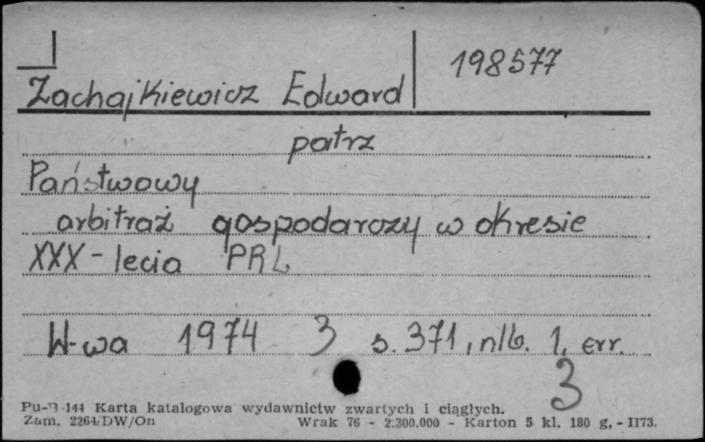 198577
Zachajkiewicz Edward
patrz
Państwowy
arbitraż gospodarczy w okresie
XXX-lecia PRL
W-wa 1974 3 s. 371, nlb. 1, err.
3
Pu-B-144 Karta katalogowa wydawnictw zwartych i ciągłych.
Zam. 2264/DW/On Wrak 76 - 2.300.000 - Karton 5 kl. 180 g, - II73.